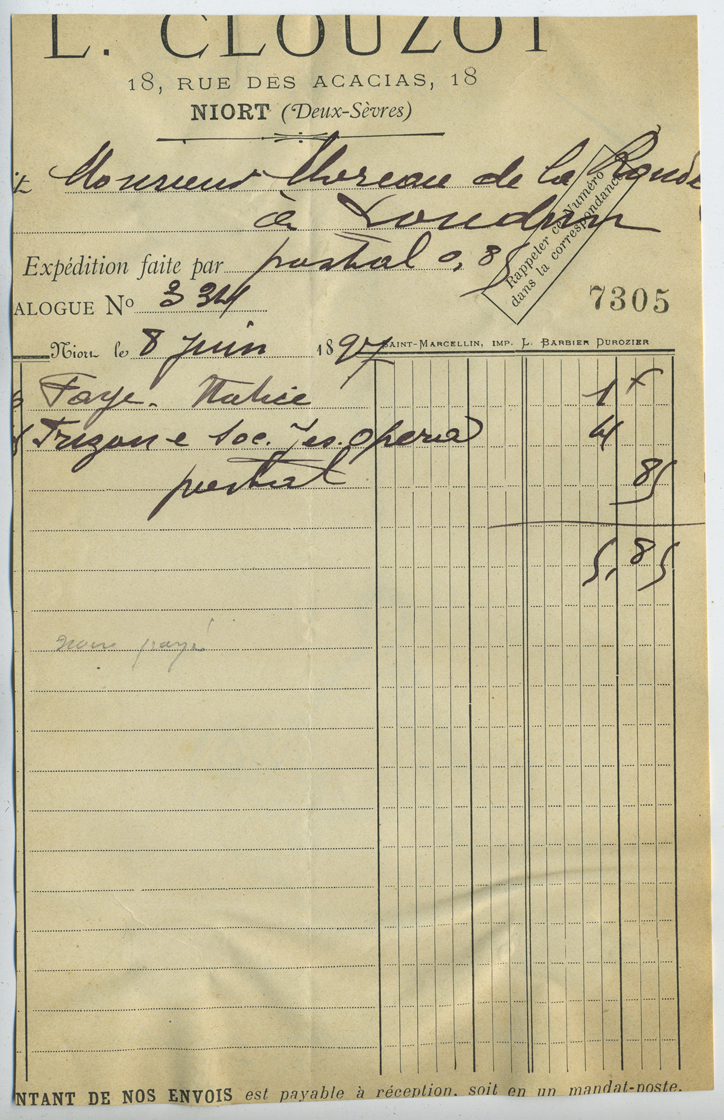 L. CLOUZOT
18, RUE DES ACACIAS, 18
NIORT (Deux-Sèvres)
it Monsieur Moreau de la Ronde
à Loudun
Expédition faite par postal 0,85
Rappeler ce Numéro
dans la correspondance
ALOGUE No 334
7305
Niort le 8 Juin 1897
SAINT-MARCELLIN, IMP. L. BARBIER DUROZIER
Faye. Notice 1 f
Soc. Jes. opera 4
postal 85
5,85
non payé
NTANT DE NOS ENVOIS est payable à réception, soit en un mandat-poste.